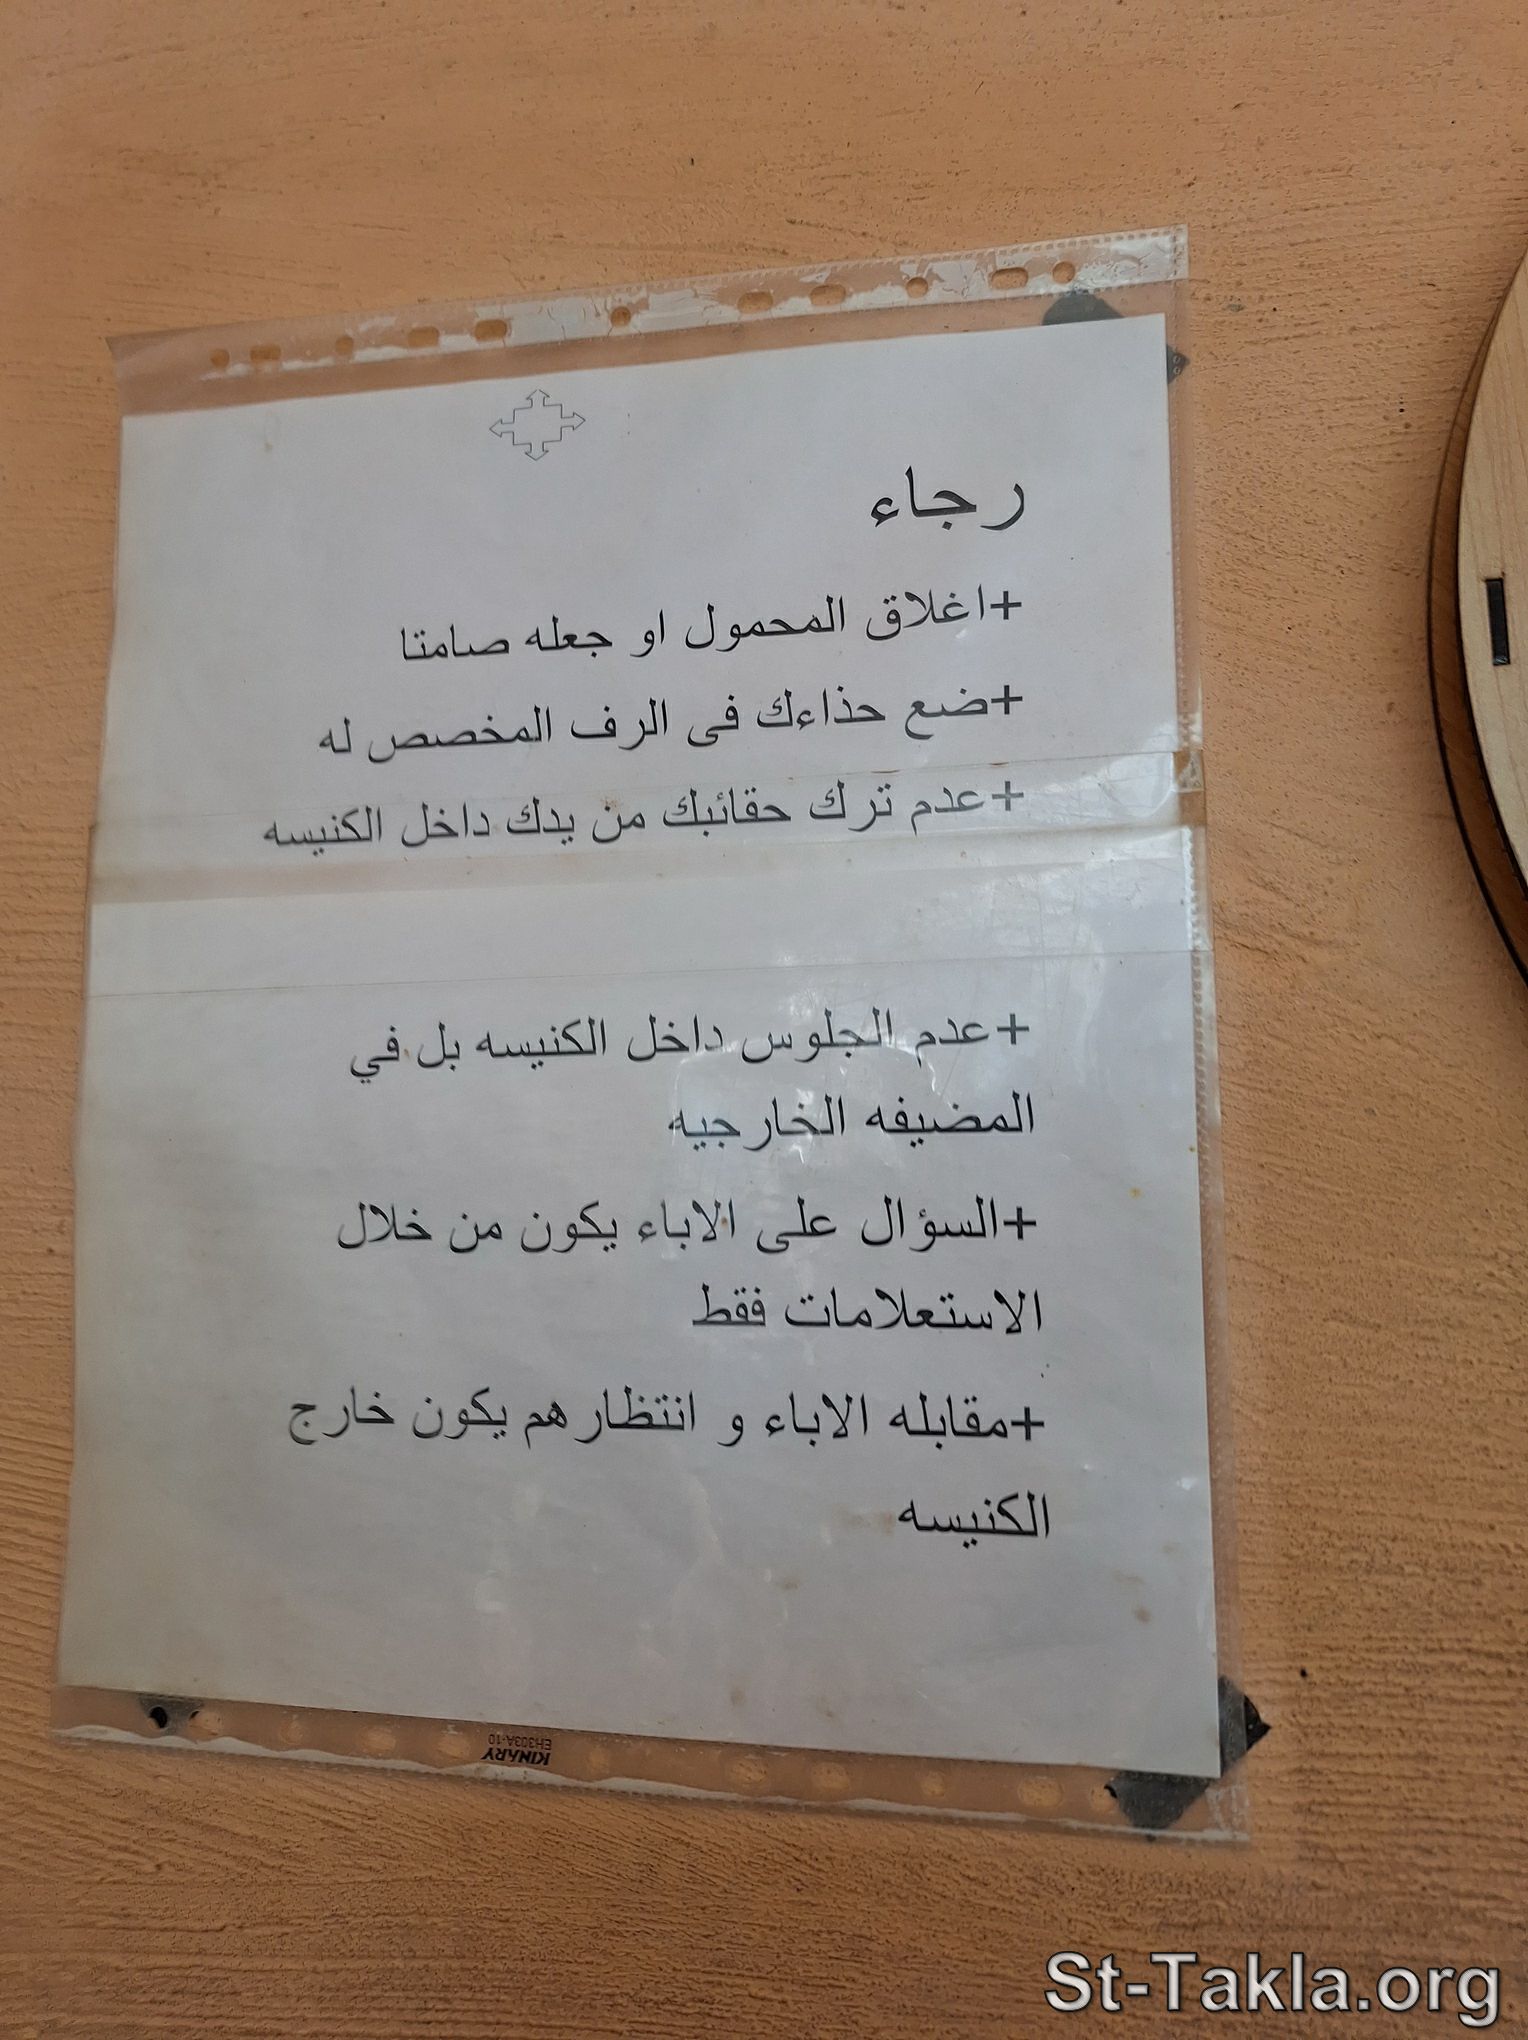 رجاء
+اغلاق المحمول او جعله صامتا
+ضع حذاءك فى الرف المخصص له
+عدم ترك حقائبك من يدك داخل الكنيسه
+عدم الجلوس داخل الكنيسه بل في
المضيفه الخارجيه
+السؤال على الاباء يكون من خلال
الاستعلامات فقط
+مقابله الاباء و انتظارهم يكون خارج
الكنيسه
KINARY
EH303A-10
St-Takla.org